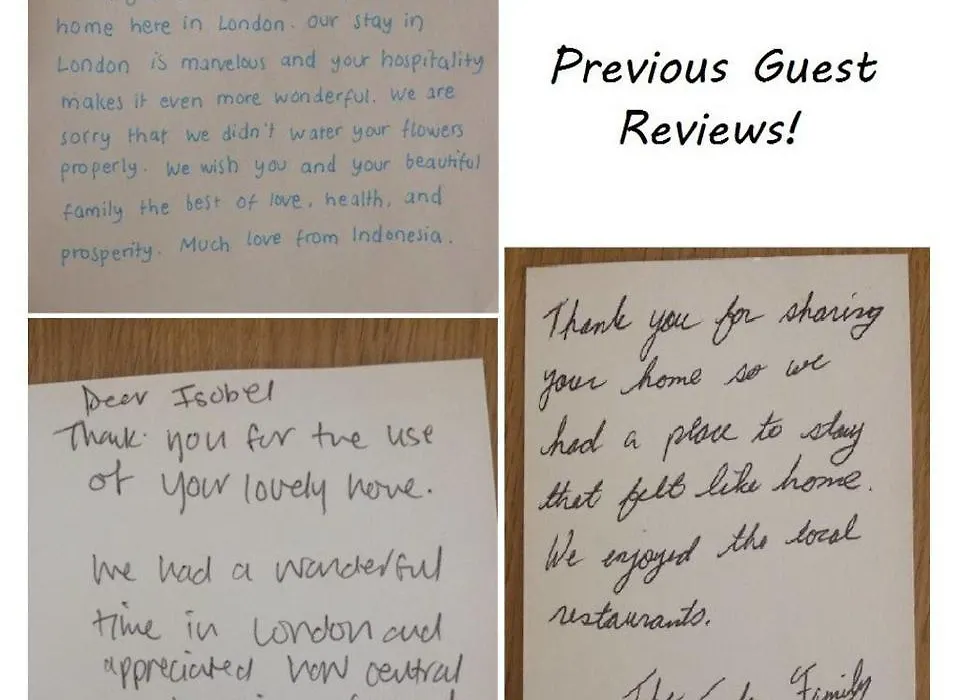 home here in London. our stay in
London is marvelous and your hospitality
makes it even more wonderful. We are
sorry that we didn't water your flowers
properly. We wish you and your beautiful
family the best of love, health, and
prosperity. Much love from Indonesia.
Previous Guest
Reviews!
Dear Isobel
Thank you for the use
of your lovely home.
We had a wonderful
time in London and
appreciated how central
Thank you for sharing
your home so we
had a place to stay
that felt like home.
We enjoyed the local
restaurants.
The Family